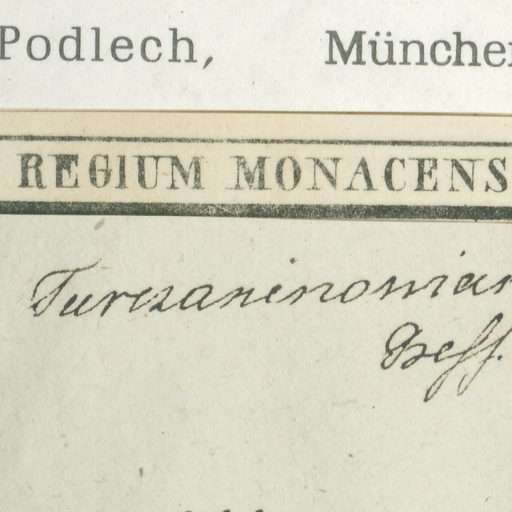 Podlech, München
REGIUM MONACENS
Turczaninowian
Bess.